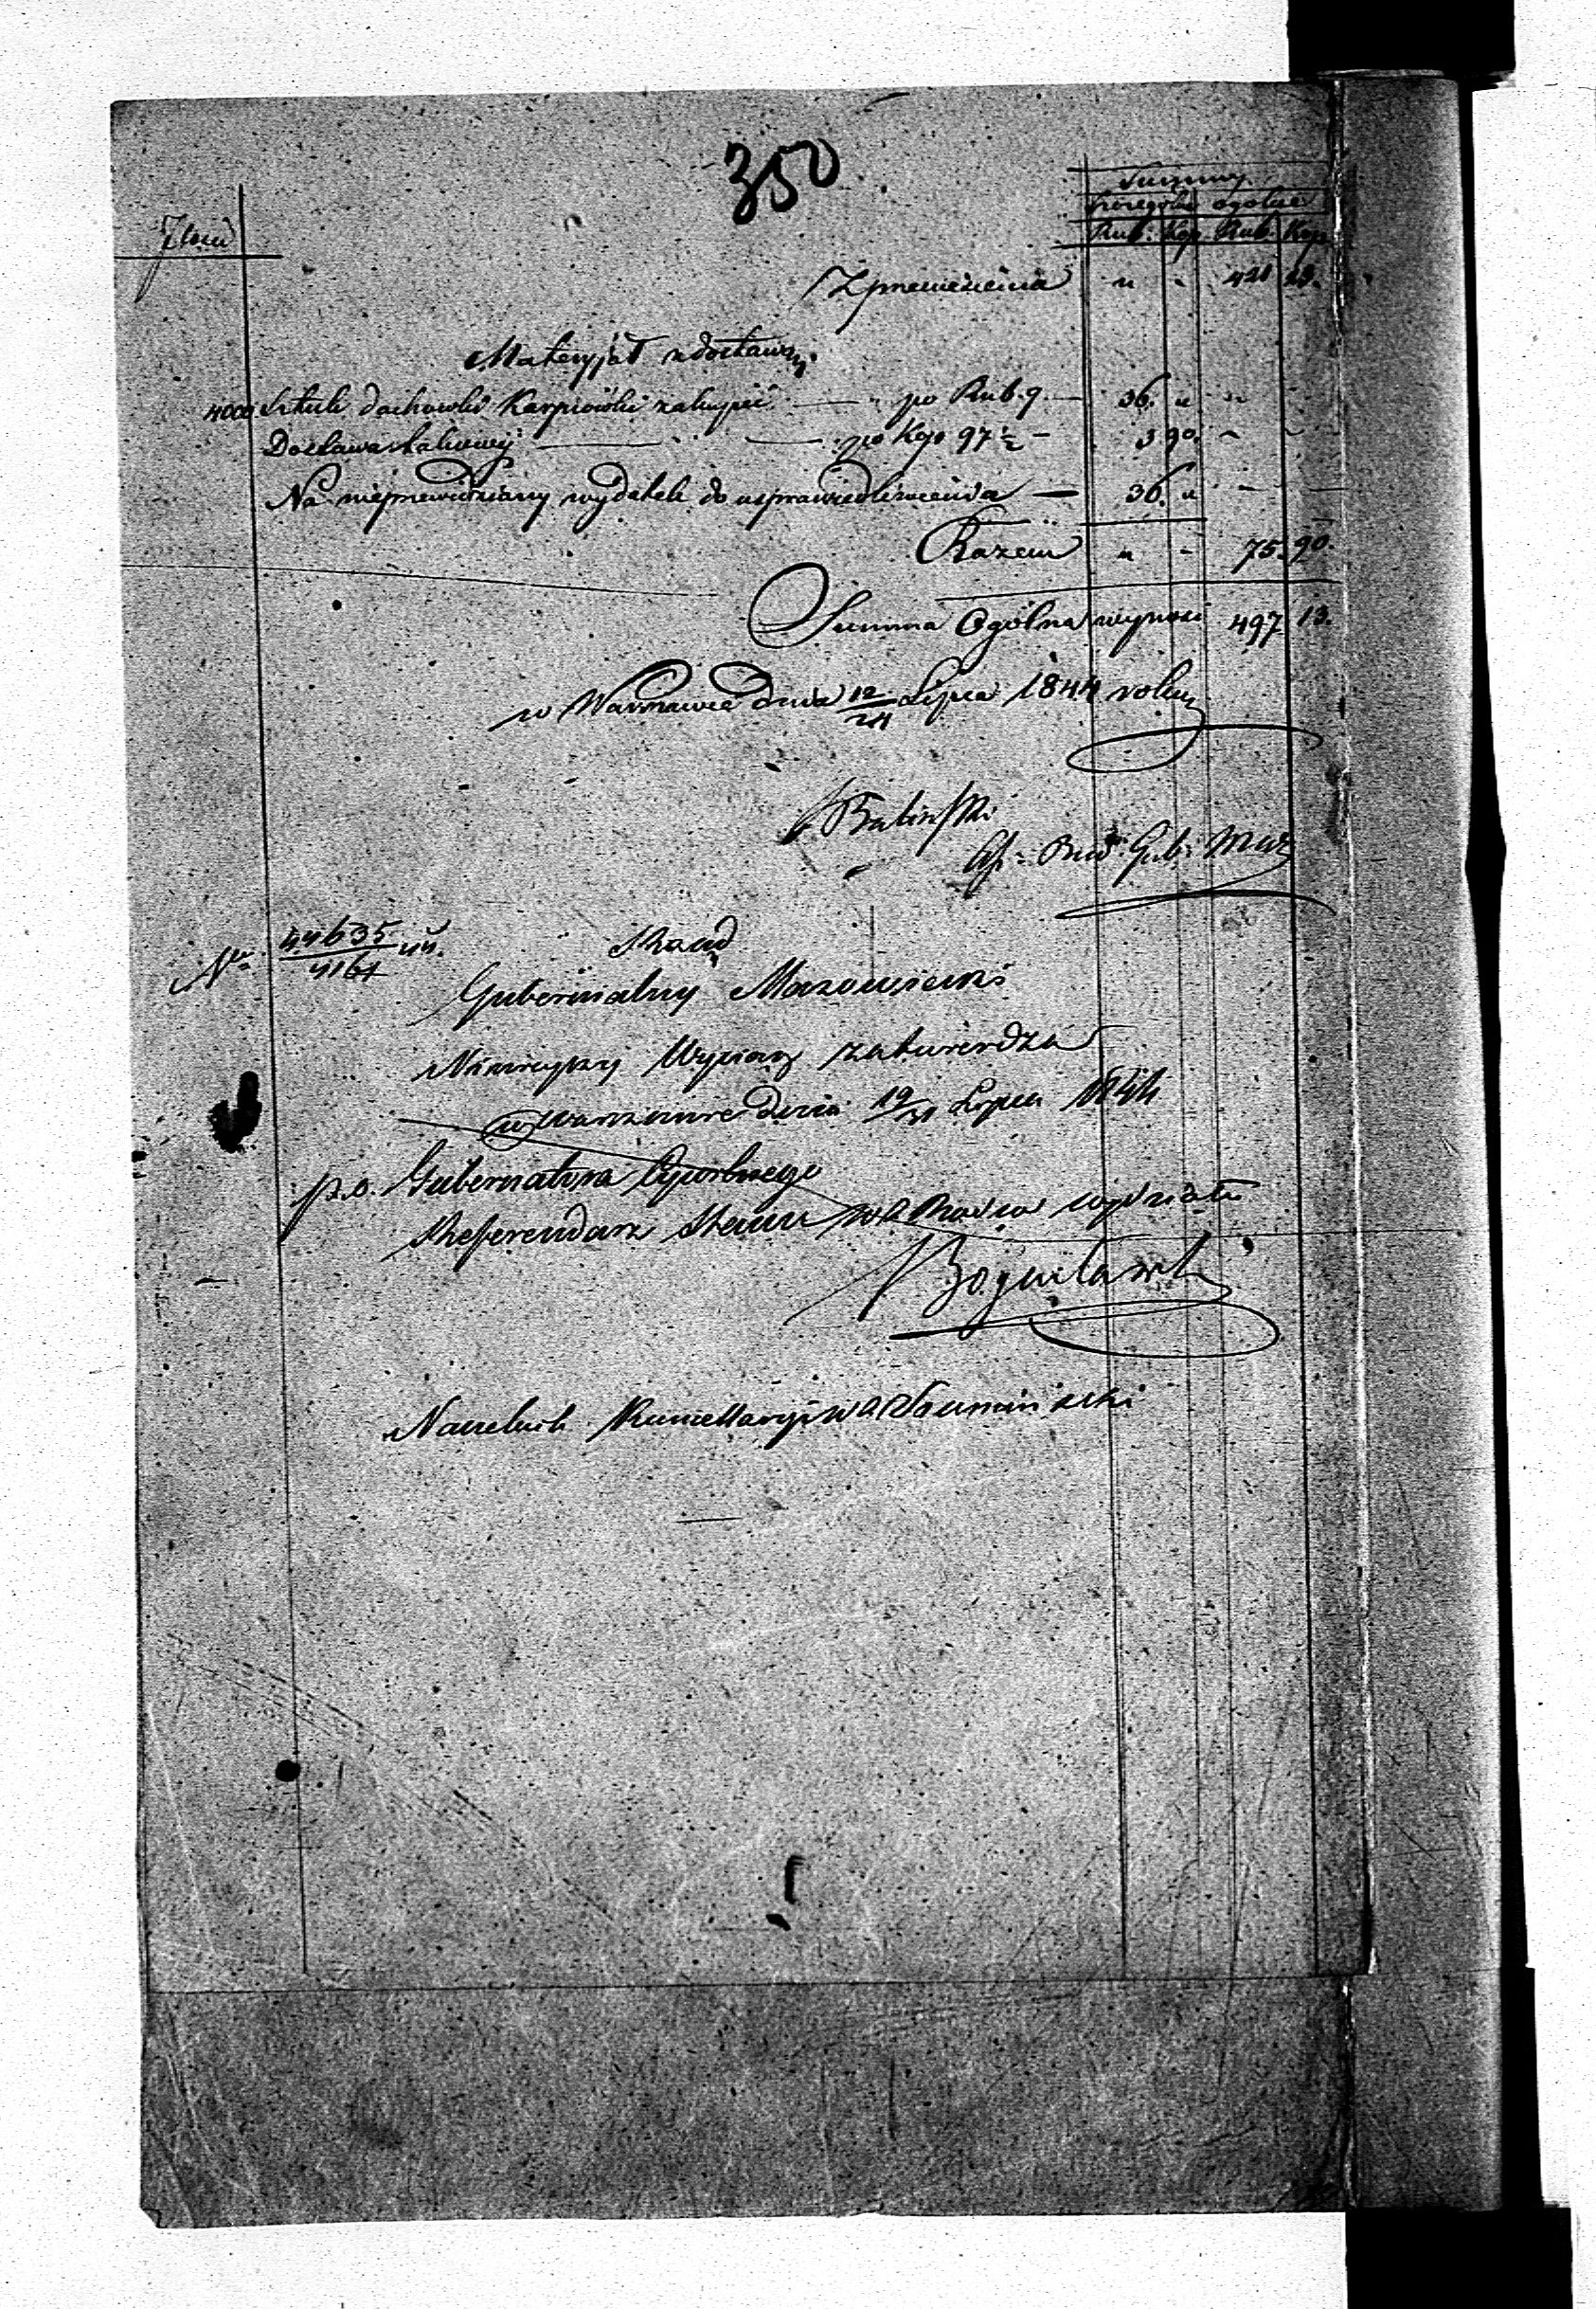 350
Ilość
Summy
szczególne ogólne
Rub: Kop. Rub: Kop
Z przeniesienia " " 421 23.
Materyjał z dostawą.
4000 Sztuk dachówki Karpiówki zakupić — po Rub. 9. — 36. " "
Dostawa takowej — po Kop 97½ — 3 90. –
Na nieprzewidziany wydatek do usprawiedliwienia — 36. " –
Razem " – 75. 90.
Summa Ogólna wynosi 497 13.
w Warszawie dnia 12/24 Lipca 1844 roku
Balinski
Bud: Gub: Maz
Nr 44635/4161
Rząd
Gubernialny Mazowiecki
Niniejszy Wyciąg zatwierdza
w Warszawie dnia 19/31 Lipca 1844
p.o. Gubernatora Cywilnego
Referendarz Stanu Radca wydziału
Bogusławski
Naczelnik Kancellaryi